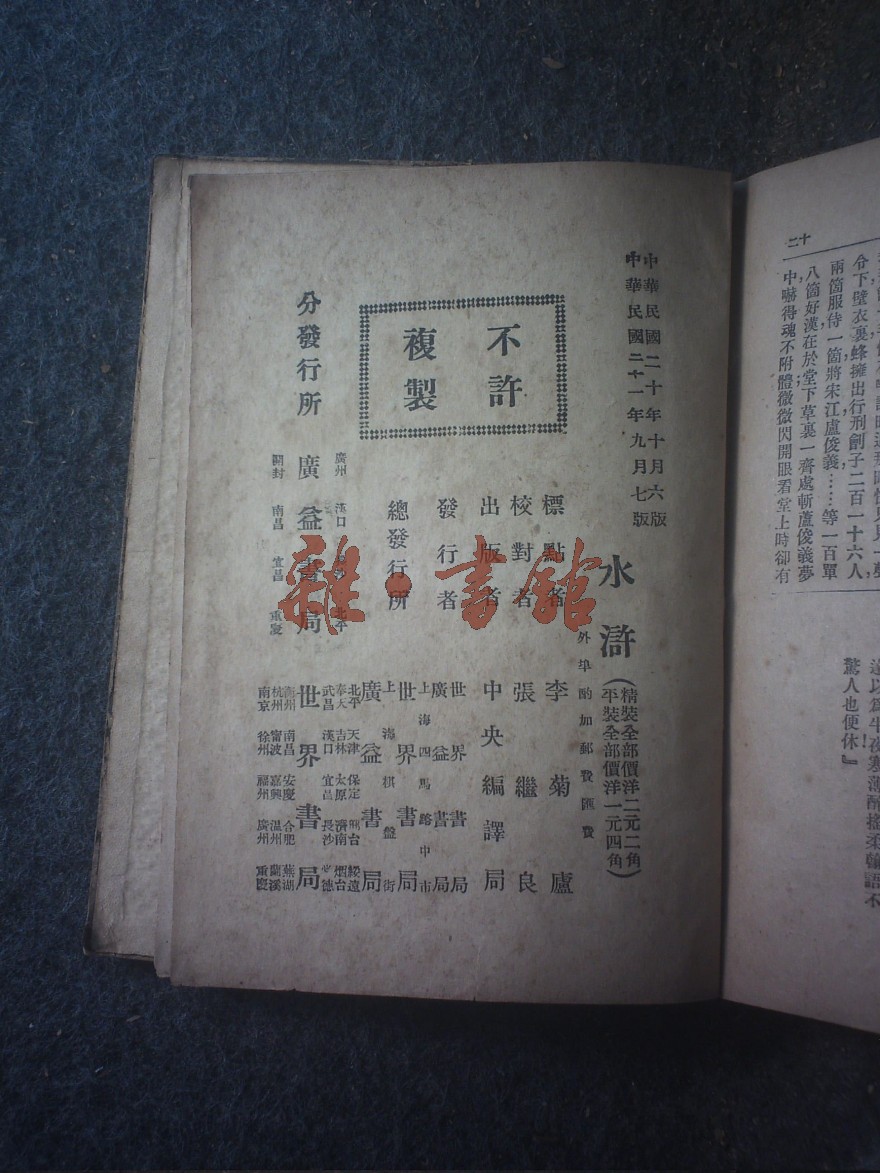 二十
令下壁衣裏蜂擁出行刑劊子二百一十六人
兩箇服侍一箇將宋江盧俊義……等一百單
八箇好漢在於堂下草裏一齊處斬盧俊義夢
中嚇得魂不附體微微閃開眼看堂上時卻有
驚人也便休』
中華民國二十年十月六版
中華民國二十一年九月七版
水滸
(精裝全部價洋二元二角
平裝全部價洋一元四角)
外埠酌加郵費匯費
標點者 李菊廬
校對者 張繼良
出版者 中央編譯局
發行者 世界書局
廣益書局
總發行所 上海四馬路中市
世界書局
上海棋盤街
廣益書局
不許
複製
分發行所
廣州 漢口 北平
廣益書局
開封 南昌 宜昌 重慶
北平 天津 保定 邢台 綏遠
奉天 吉林 太原 濟南 烟台
武昌 漢口 宜昌 長沙
世界書局
南昌 安慶 合肥 蕪湖
杭州 甯波 嘉興 溫州 蘭溪
南京 徐州 福州 廣州 重慶
雜·書館